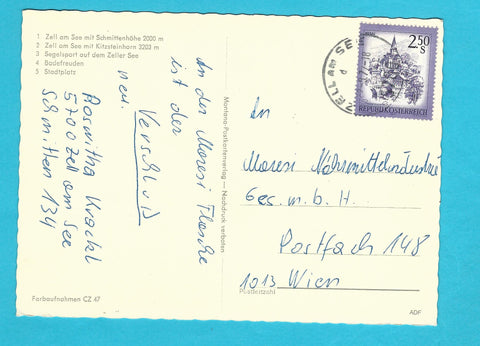 1 Zell am See mit Schmittenhöhe 2000 m
2 Zell am See mit Kitzsteinhorn 3203 m
3 Segelsport auf dem Zeller See
4 Badefreuden
5 Stadtplatz
An der Maresi Flasche
ist der
Verschluß
neu.
Roswitha Krackl
5700 Zell am See
Schmitten 134
Farbaufnahmen CZ 47
Nachdruck verboten
ZELL AM SEE
2.50
S
REPUBLIK ÖSTERREICH
An
Maresi Nährmittelindustrie
Ges. m. b. H.
Postfach 148
1013 Wien
Postleitzahl
ADF